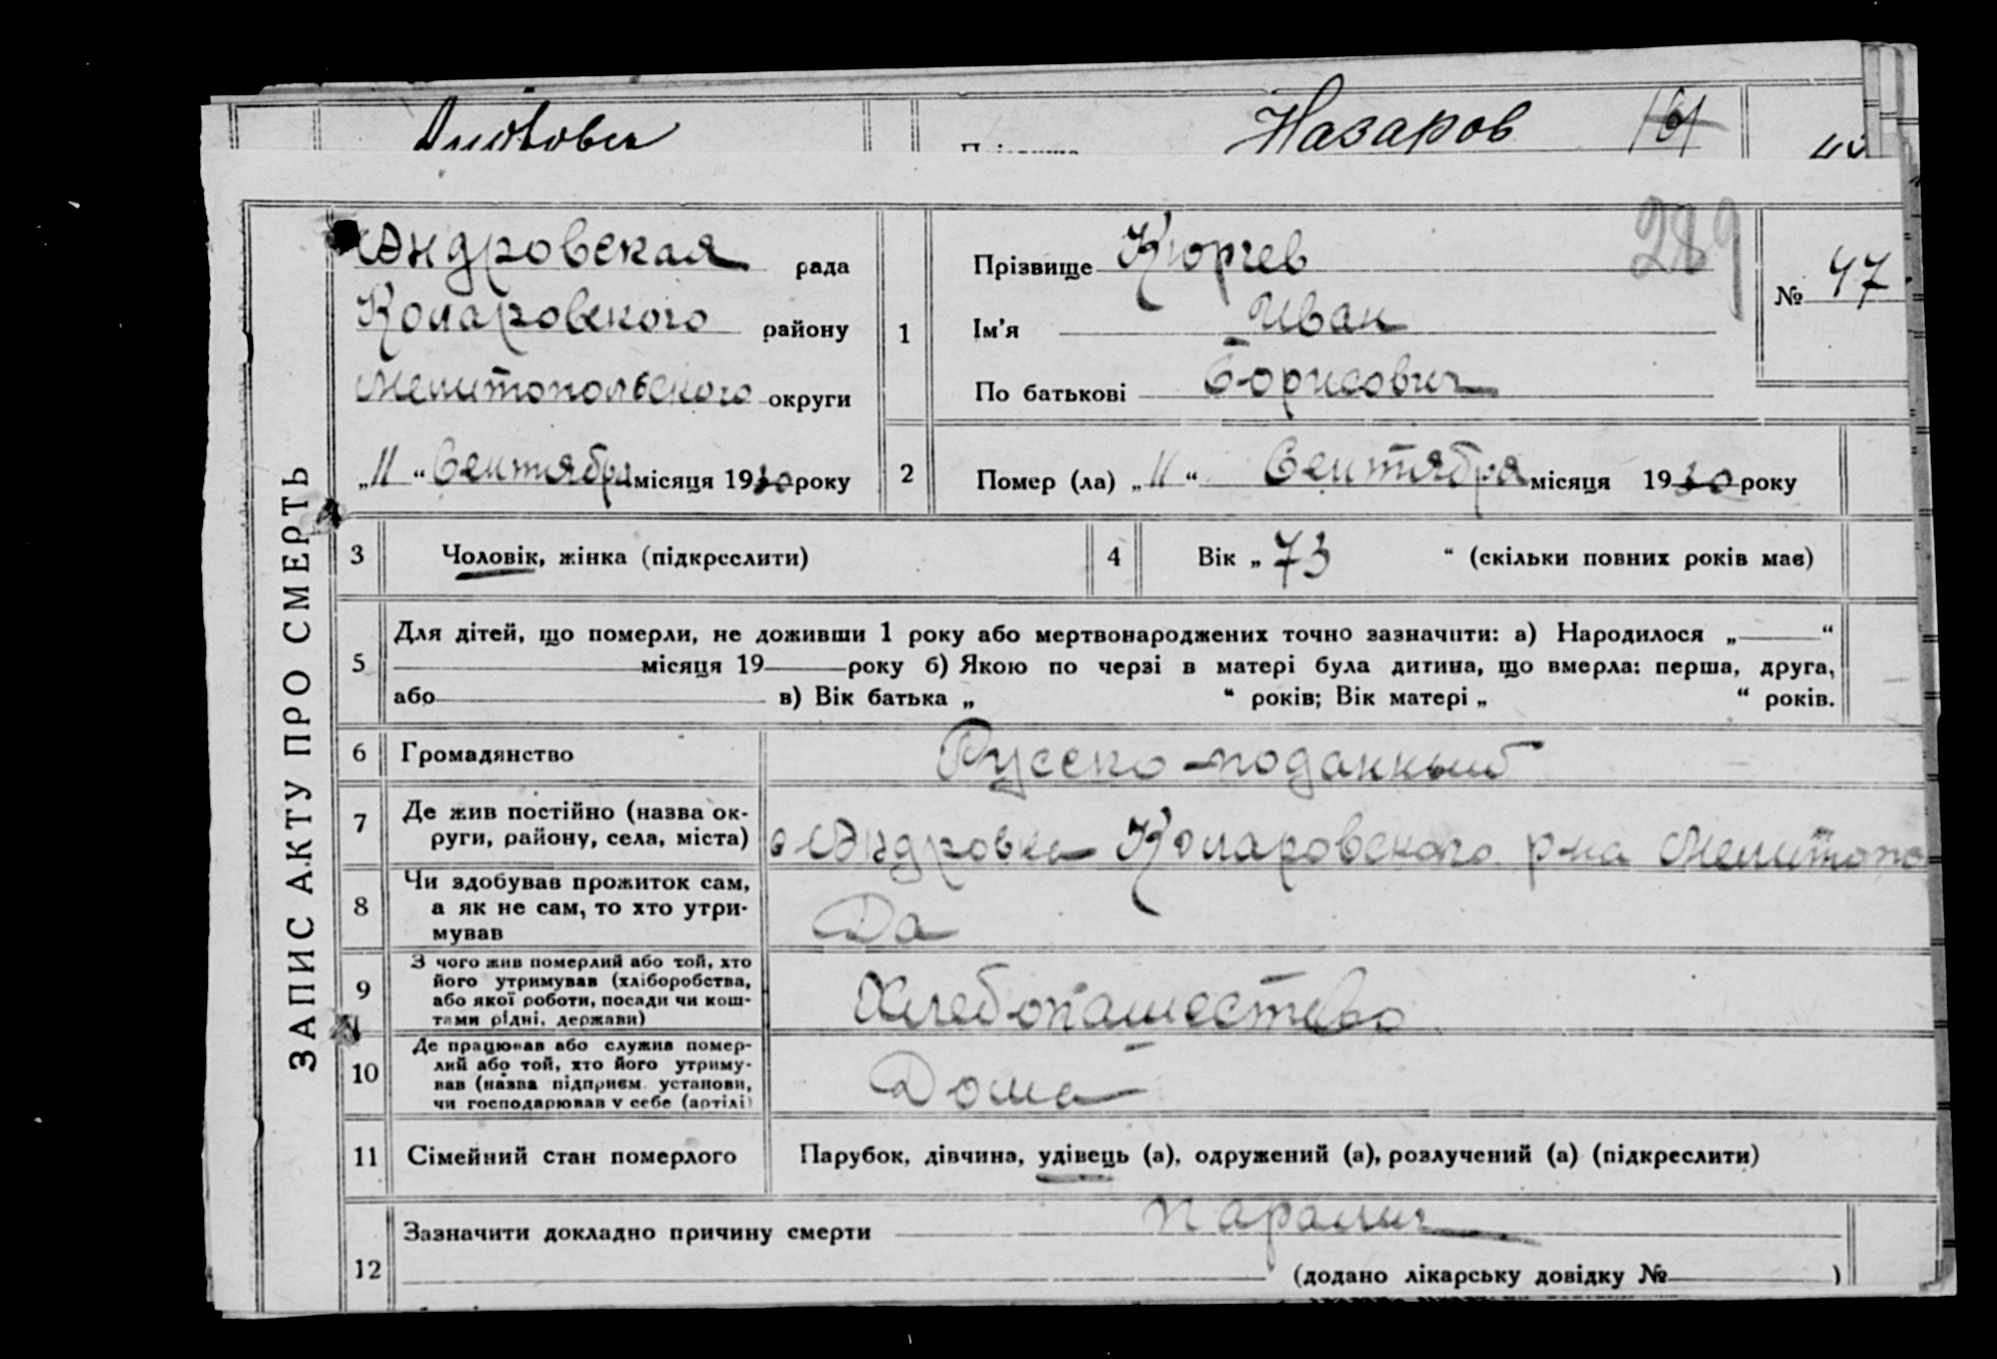 Назаров
289
ЗАПИС АКТУ ПРО СМЕРТЬ
Андровская рада
Коларовского району
Мелитопольского округи
„11“ Сентября місяця 1930 року
1
Прізвище Кюрчев
Ім'я Иван
По батькові Борисович
№ 47
2
Помер (ла) „11“ Сентября місяця 1930 року
3
Чоловік, жінка (підкреслити)
4
Вік „73“ (скільки повних років має)
5
Для дітей, що померли, не доживши 1 року або мертвонароджених точно зазначити: а) Народилося „ “
місяця 19 року б) Якою по черзі в матері була дитина, що вмерла: перша, друга,
або в) Вік батька „ “ років; Вік матері „ “ років.
6
Громадянство
Русско-поданный
7
Де жив постійно (назва ок-
руги, району, села, міста)
с Андровка Коларовского р-на Мелитопо
8
Чи здобував прожиток сам,
а як не сам, то хто утри-
мував
Да
9
З чого жив померлий або той, хто
його утримував (хліборобства,
або якої роботи, посади чи кош-
тами рідні, держави)
Хлебопашество
10
Де працював або служив помер-
лий або той, хто його утриму-
вав (назва підприєм. установи,
чи господарював у себе (артілі)
Дома
11
Сімейний стан померлого
Парубок, дівчина, удівець (а), одружений (а), розлучений (а) (підкреслити)
12
Зазначити докладно причину смерти Паралич
(додано лікарську довідку № )